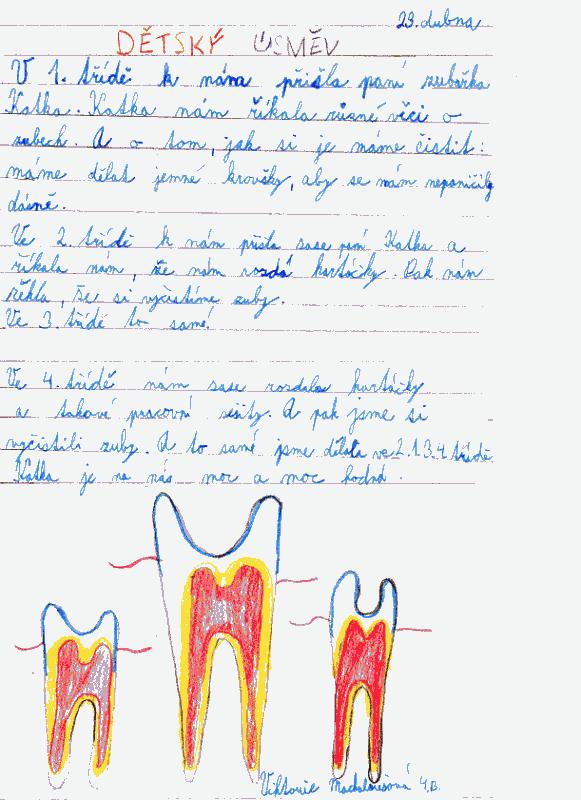 23. dubna
DĚTSKÝ ÚSMĚV
V 1. třídě k nám přišla paní zubařka
Katka. Katka nám říkala různé věci o
zubech. A o tom, jak si je máme čistit:
máme dělat jemné kroužky, aby se nám neponičily
dásně.
Ve 2. třídě k nám přišla zase paní Katka a
říkala nám, že nám rozdá kartáčky. Pak nám
řekla, že si vyčistíme zuby.
Ve 3. třídě to samé.
Ve 4. třídě nám zase rozdala kartáčky
a takové pracovní sešity. A pak jsme si
vyčistili zuby. A to samé jsme dělali ve 2.1.3.4 třídě.
Katka je na nás moc a moc hodná.
Viktorie 4.B.